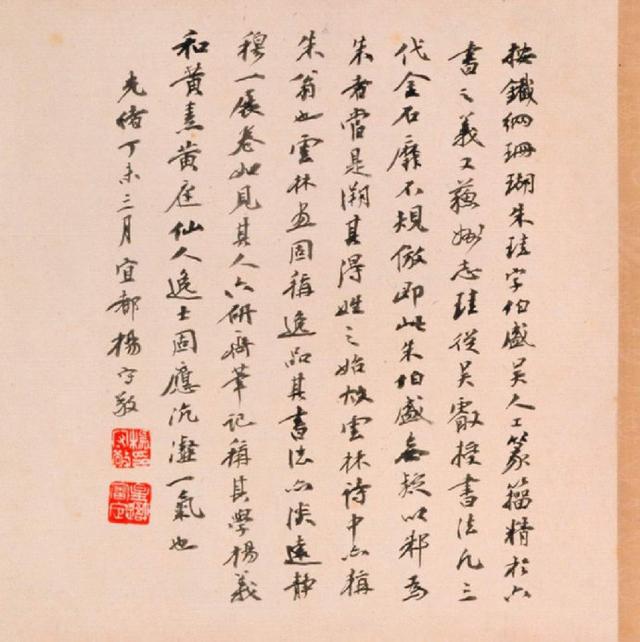 按鐵網珊瑚朱珪字伯盛吳人工篆籀精於六
書之義又蘇州志珪從吳叡授書法凡三
代金石靡不規倣即此朱伯盛無疑以邾為
朱者當是溯其得姓之始故雲林詩中亦稱
朱翁也雲林畫固稱逸品其書法亦淡遠靜
穆一展卷如見其人六研齋筆記稱其學楊羲
和黃素黃庭仙人逸士固應沆瀣一氣也
光緒丁未三月宜都楊守敬